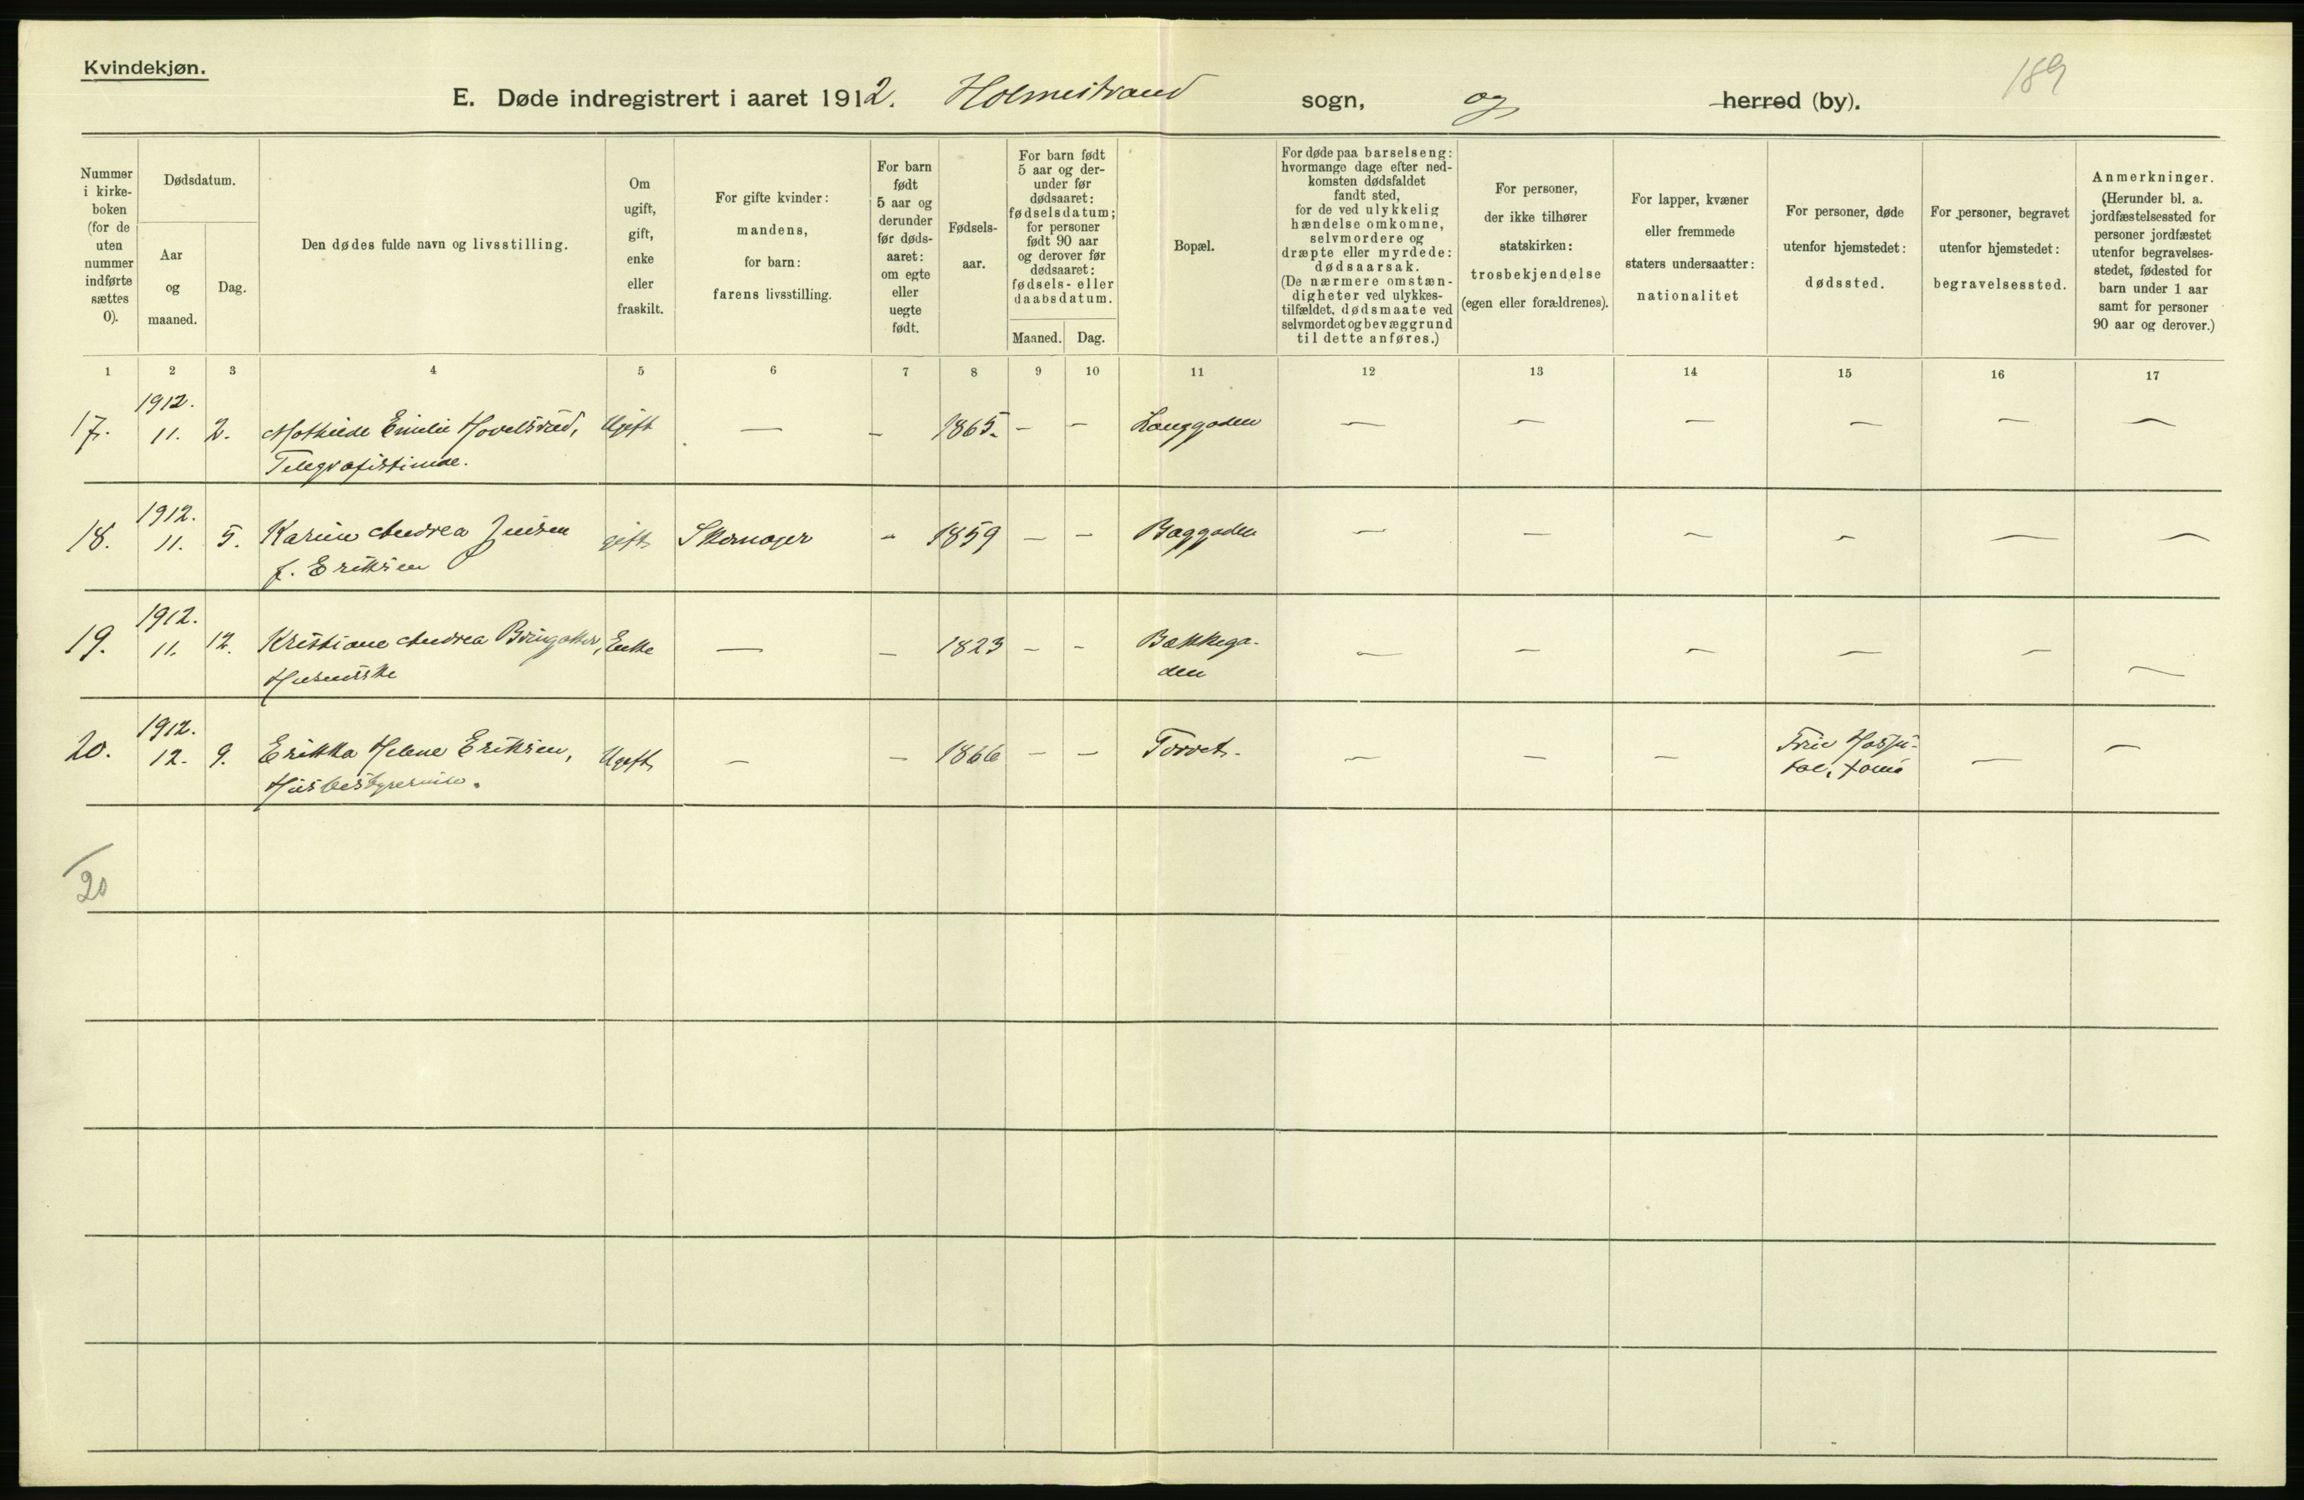 Kvindekjøn.
E. Døde indregistrert i aaret 1912. Holmestrand sogn, og herred (by).
189
Nummer i kirke- boken (for de uten nummer indførte sættes 0).
Dødsdatum.
Aar og maaned.
Dag.
Den dødes fulde navn og livsstilling.
Om ugift, gift, enke eller fraskilt.
For gifte kvinder: mandens, for barn: farens livsstilling.
For barn født 5 aar og derunder før døds- aaret: om egte eller uegte født.
Fødsels- aar.
For barn født 5 aar og der- under før dødsaaret: fødselsdatum; for personer født 90 aar og derover før dødsaaret: fødsels- eller daabsdatum.
Maaned.
Dag.
Bopæl.
For døde paa barselseng: hvormange dage efter ned- komsten dødsfaldet fandt sted, for de ved ulykkelig hændelse omkomne, selvmordere og dræpte eller myrdede: dødsaarsak. (De nærmere omstæn- digheter ved ulykkes- tilfældet, dødsmaate ved selvmordet og bevæggrund til dette anføres.)
For personer, der ikke tilhører statskirken: trosbekjendelse (egen eller forældrenes).
For lapper, kvæner eller fremmede staters undersaatter: nationalitet
For personer, døde utenfor hjemstedet: dødssted.
For personer, begravet utenfor hjemstedet: begravelsessted.
Anmerkninger. (Herunder bl. a. jordfæstelsessted for personer jordfæstet utenfor begravelses- stedet, fødested for barn under 1 aar samt for personer 90 aar og derover.)
1 2 3 4 5 6 7 8 9 10 11 12 13 14 15 16 17
1912.
17. 11. 2. Mathilde Emilie Hovelsrud, Ugift — — 1865. — — Langgaden — — — — — —
Telegrafistinde.
1912.
18. 11. 5. Karine Andrea Jensen gift Skomager — 1859 — — Baggaden — — — — — —
f. Eriksen
1912.
19. 11. 12. Kristiane Andrea Bringaker, Enke — — 1823 — — Bakkega- — — — — — —
Huseierske den
1912.
20. 12. 9. Erikka Helene Eriksen, Ugift — — 1866 — — Torvet. — — — Frie Hospi- — —
Husbestyrerinde. tal,
20